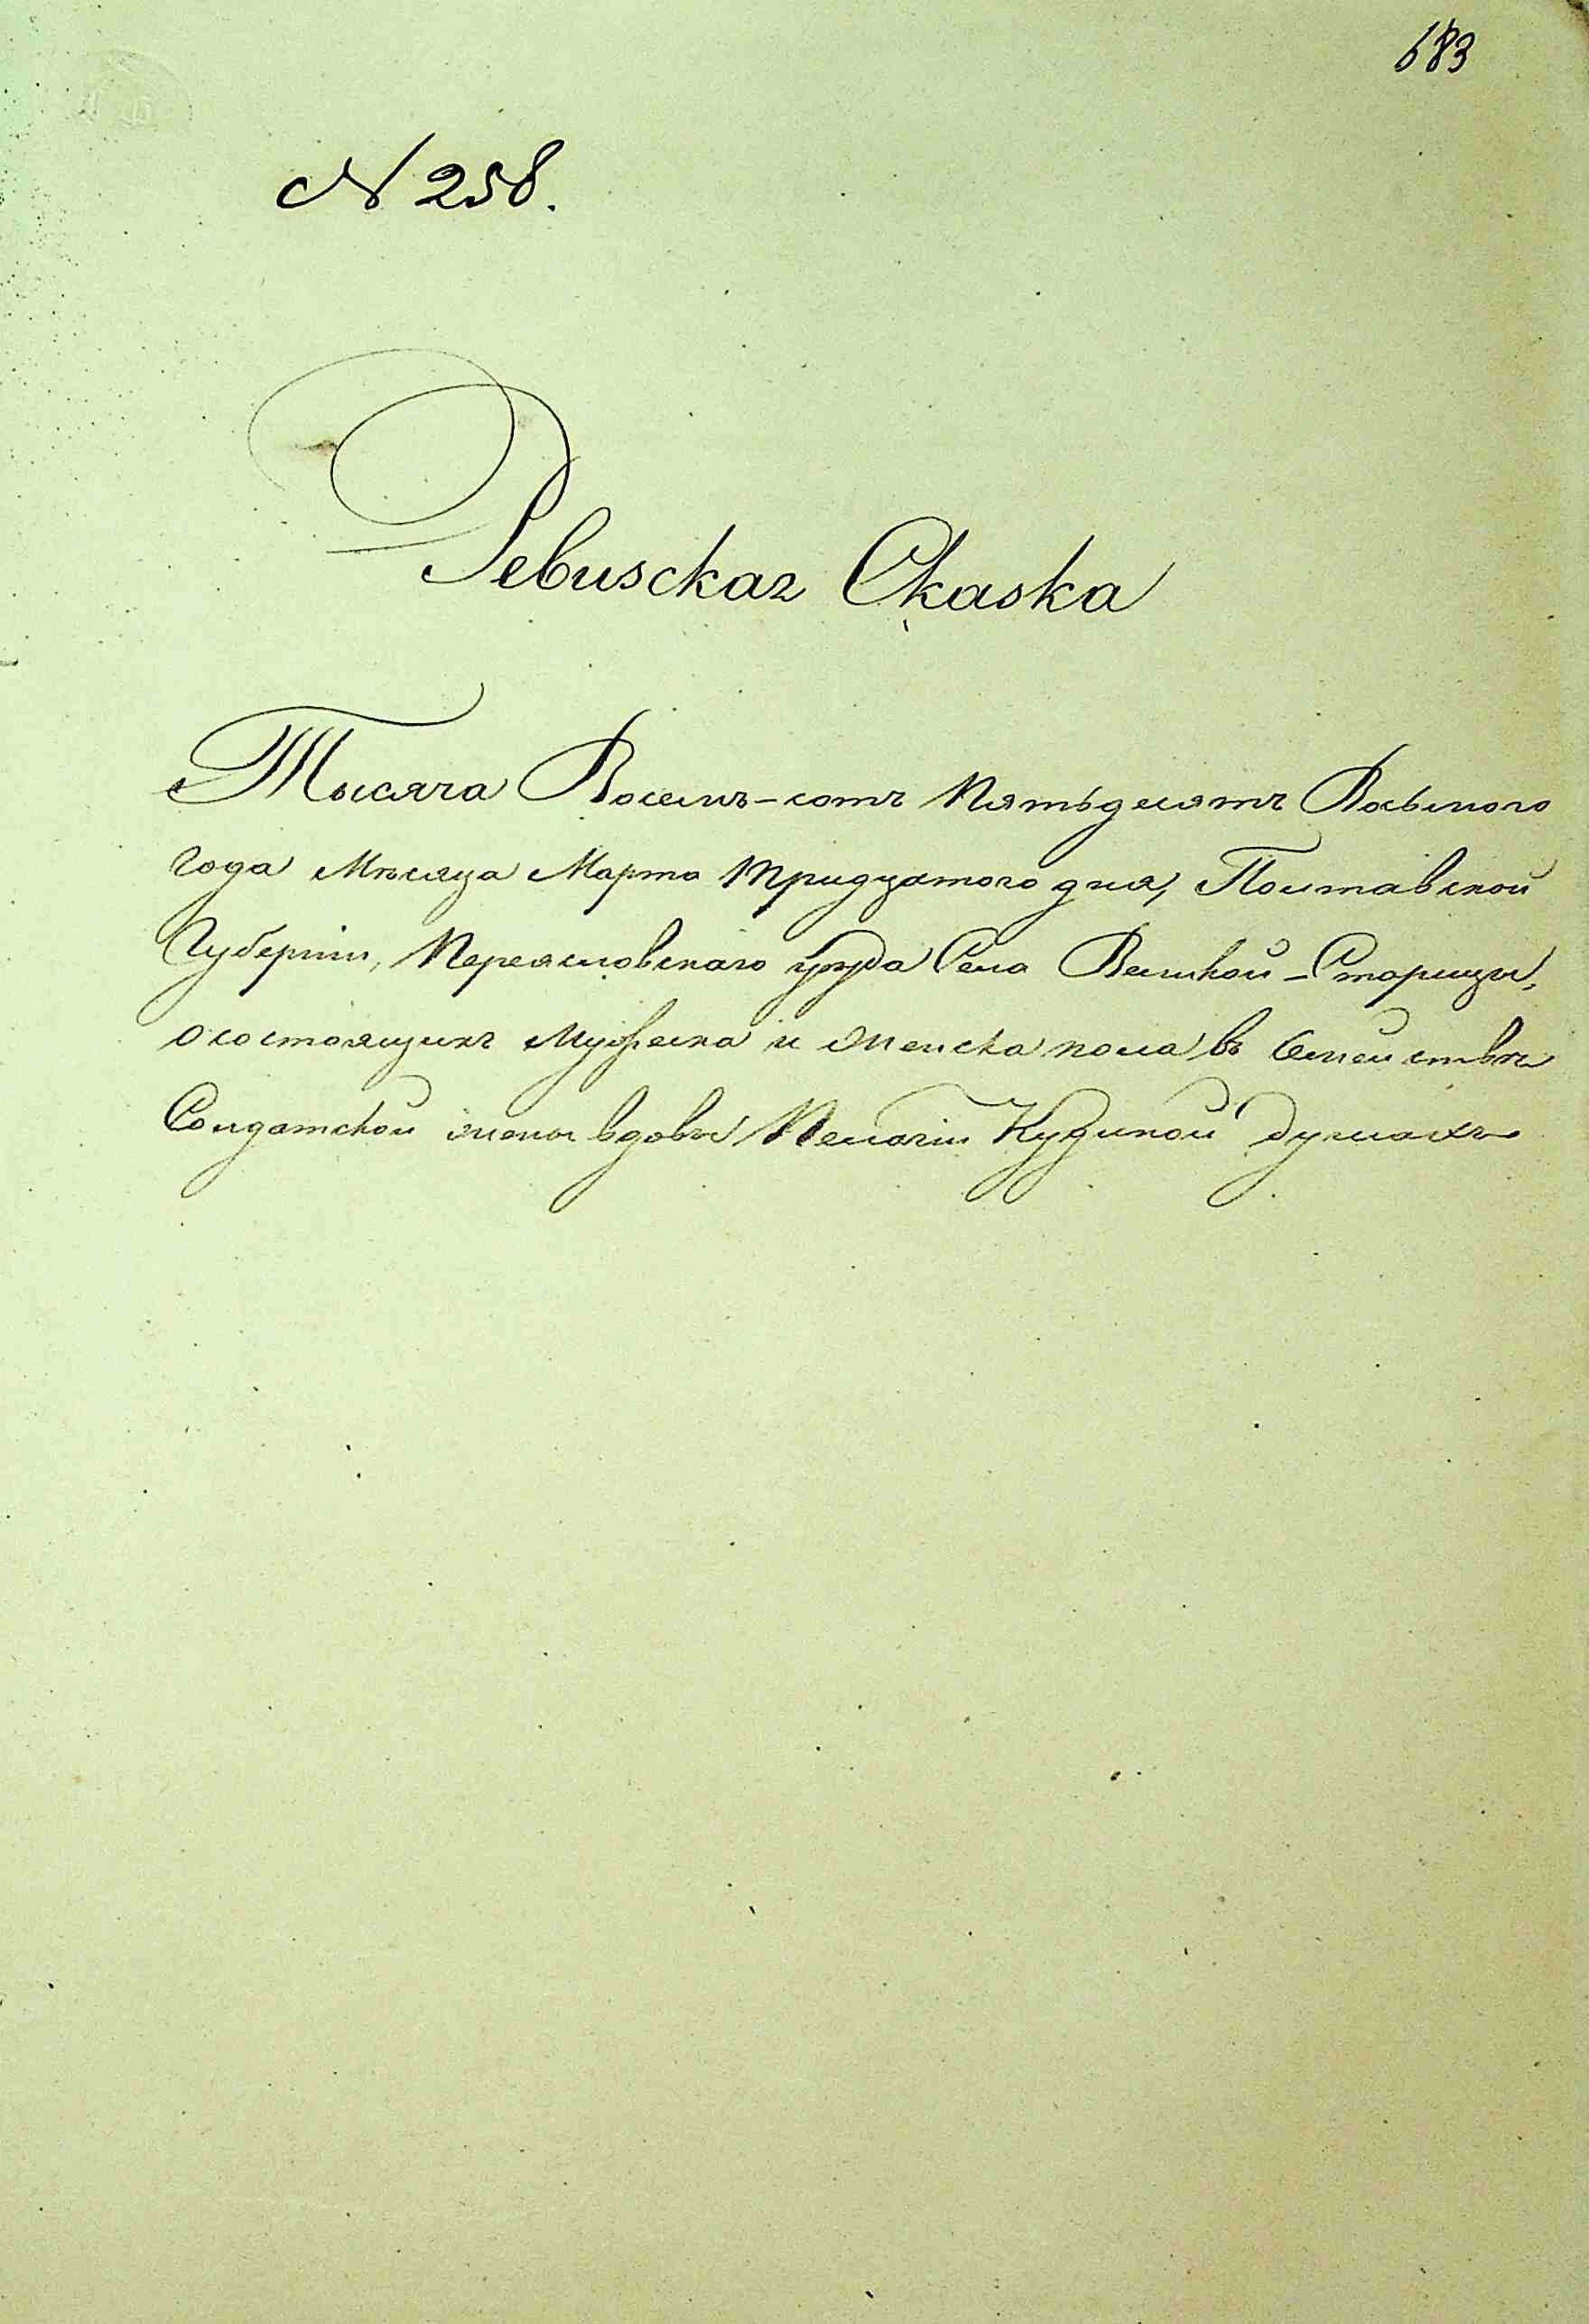 683
N 258.
Ревизская Сказка
Тысяча Восемь-сотъ Пятьдесятъ Восьмого
года Мѣсяца Марта Тридцатого дня, Полтавской
Губерніи, Переясловскаго уѣзда Села Великой-Старицы,
о состоящихъ Мужеска и Женска пола въ Семействѣ
Солдатской жены вдовы Пелагіи Кудиной душахъ